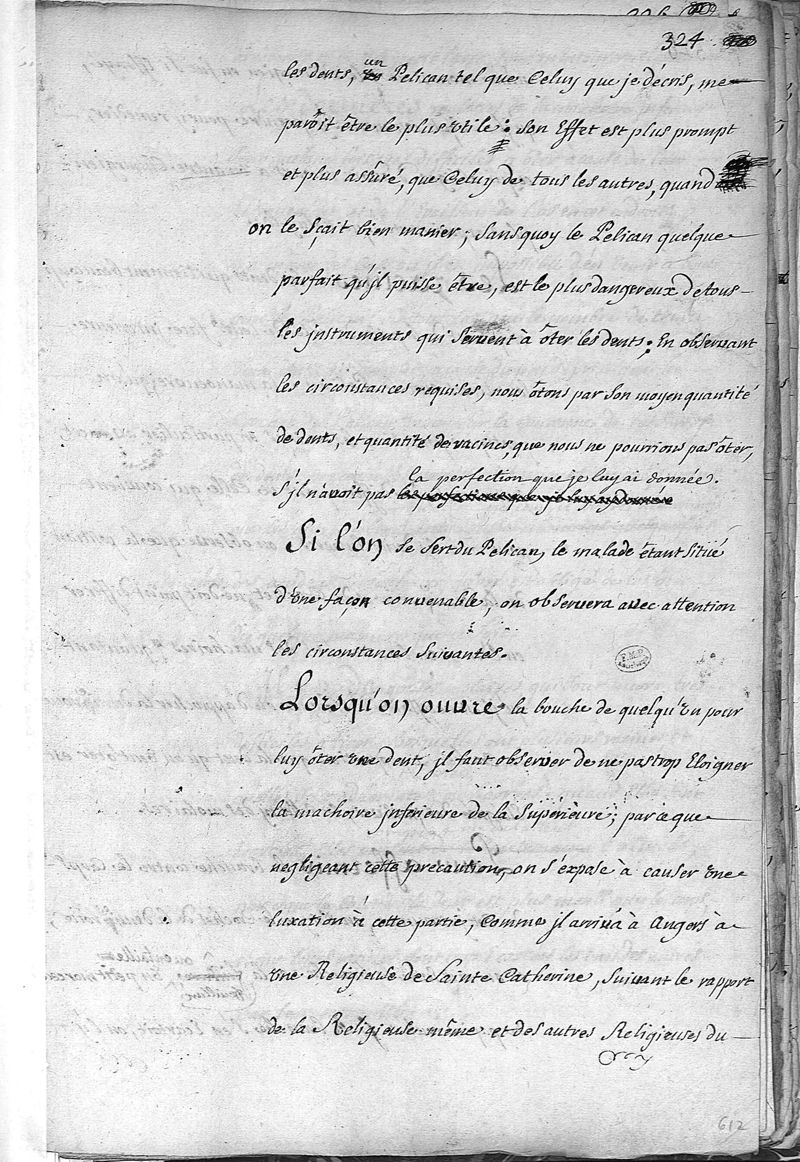 324
les dents, un Pelican tel que Celuy que je décris, me
paroît être le plus utile : Son Effet est plus prompt
et plus assûré, que Celuy de tous les autres, quand
on le sçait bien manier ; Sans quoy le Pelican quelque
parfait qu'jl puisse être, est le plus dangereux de tous
les jnstruments qui Servent à ôter les dents ; En observant
les circonstances requises, nous ôtons par Son moyen quantité
de dents, et quantité de racines, que nous ne pourrions pas ôter,
la perfection que je luy ai donnée.
s'jl n'avoit pas
Si l'on Se Sert du Pelican, le malade êtant Situé
d'une façon convenable, on observera avec attention
les circonstances Suivantes.
Lorsqu'on ouvre la bouche de quelqu'un pour
luy ôter une dent, jl faut observer de ne pas trop Eloigner
la machoire jnferieure de la Supérieure ; parce que
negligeant cette precaution, on s'expose à causer une
luxation à cette partie, Comme jl arriva à Angers à
une Religieuse de Sainte Catherine, Suivant le rapport
de la Religieuse même et des autres Religieuses du
612